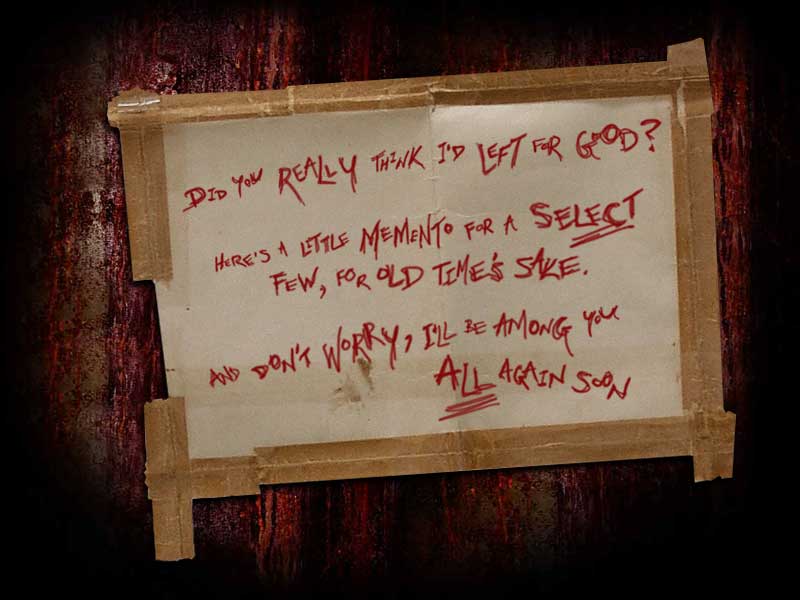 DID YOU REALLY THINK I'D LEFT FOR GOOD?
HERE'S A LITTLE MEMENTO FOR A SELECT
FEW, FOR OLD TIME'S SAKE.
AND DON'T WORRY, I'LL BE AMONG YOU
ALL AGAIN SOON